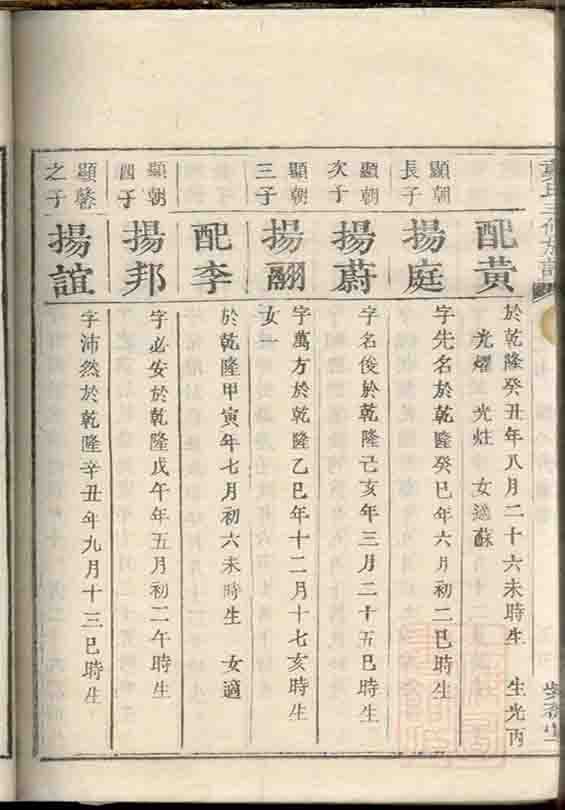 配黃
於乾隆癸丑年八月二十六未時生 生光丙
光燿 光炷 女適蘇
顯朝
長子
揚庭
字先名於乾隆癸巳年六月初二巳時生
顯朝
次子
揚蔚
字名俊於乾隆己亥年三月二十五巳時生
顯朝
三子
揚翮
字萬方於乾隆乙巳年十二月十七亥時生
女一
配李
於乾隆甲寅年七月初六未時生 女適
顯朝
四子
揚邦
字必安於乾隆戊午年五月初二午時生
顯馨
之子
揚誼
字沛然於乾隆辛丑年九月十三巳時生